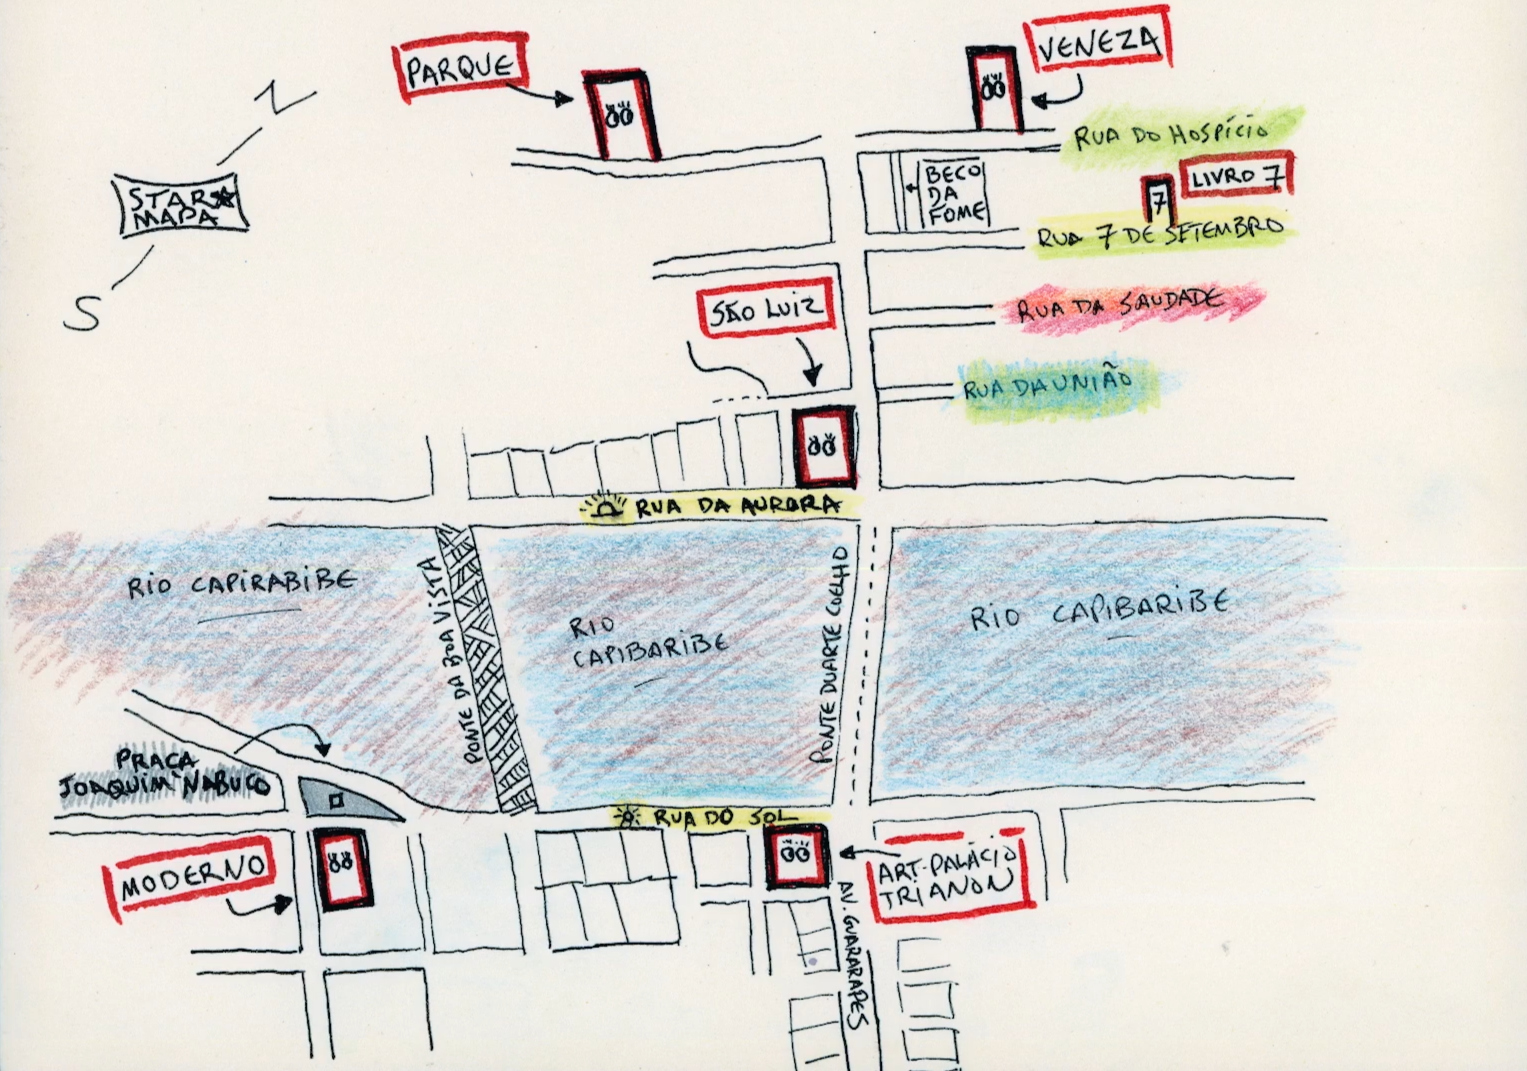 PARQUE
VENEZA
N
RUA DO HOSPÍCIO
STAR
MAPA
BECO
DA
FOME
LIVRO 7
7
RUA 7 DE SETEMBRO
S
SÃO LUIZ
RUA DA SAUDADE
RUA DA UNIÃO
RUA DA AURORA
RIO CAPIRABIBE
PONTE DA BOA VISTA
RIO
CAPIBARIBE
PONTE DUARTE COELHO
RIO CAPIBARIBE
PRAÇA
JOAQUIM NABUCO
RUA DO SOL
MODERNO
ART-PALÁCIO
TRIANON
AV. GUARARAPES